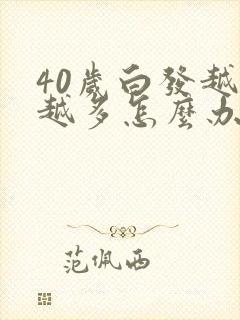 40歲白發越
越多怎麼办
范佩西